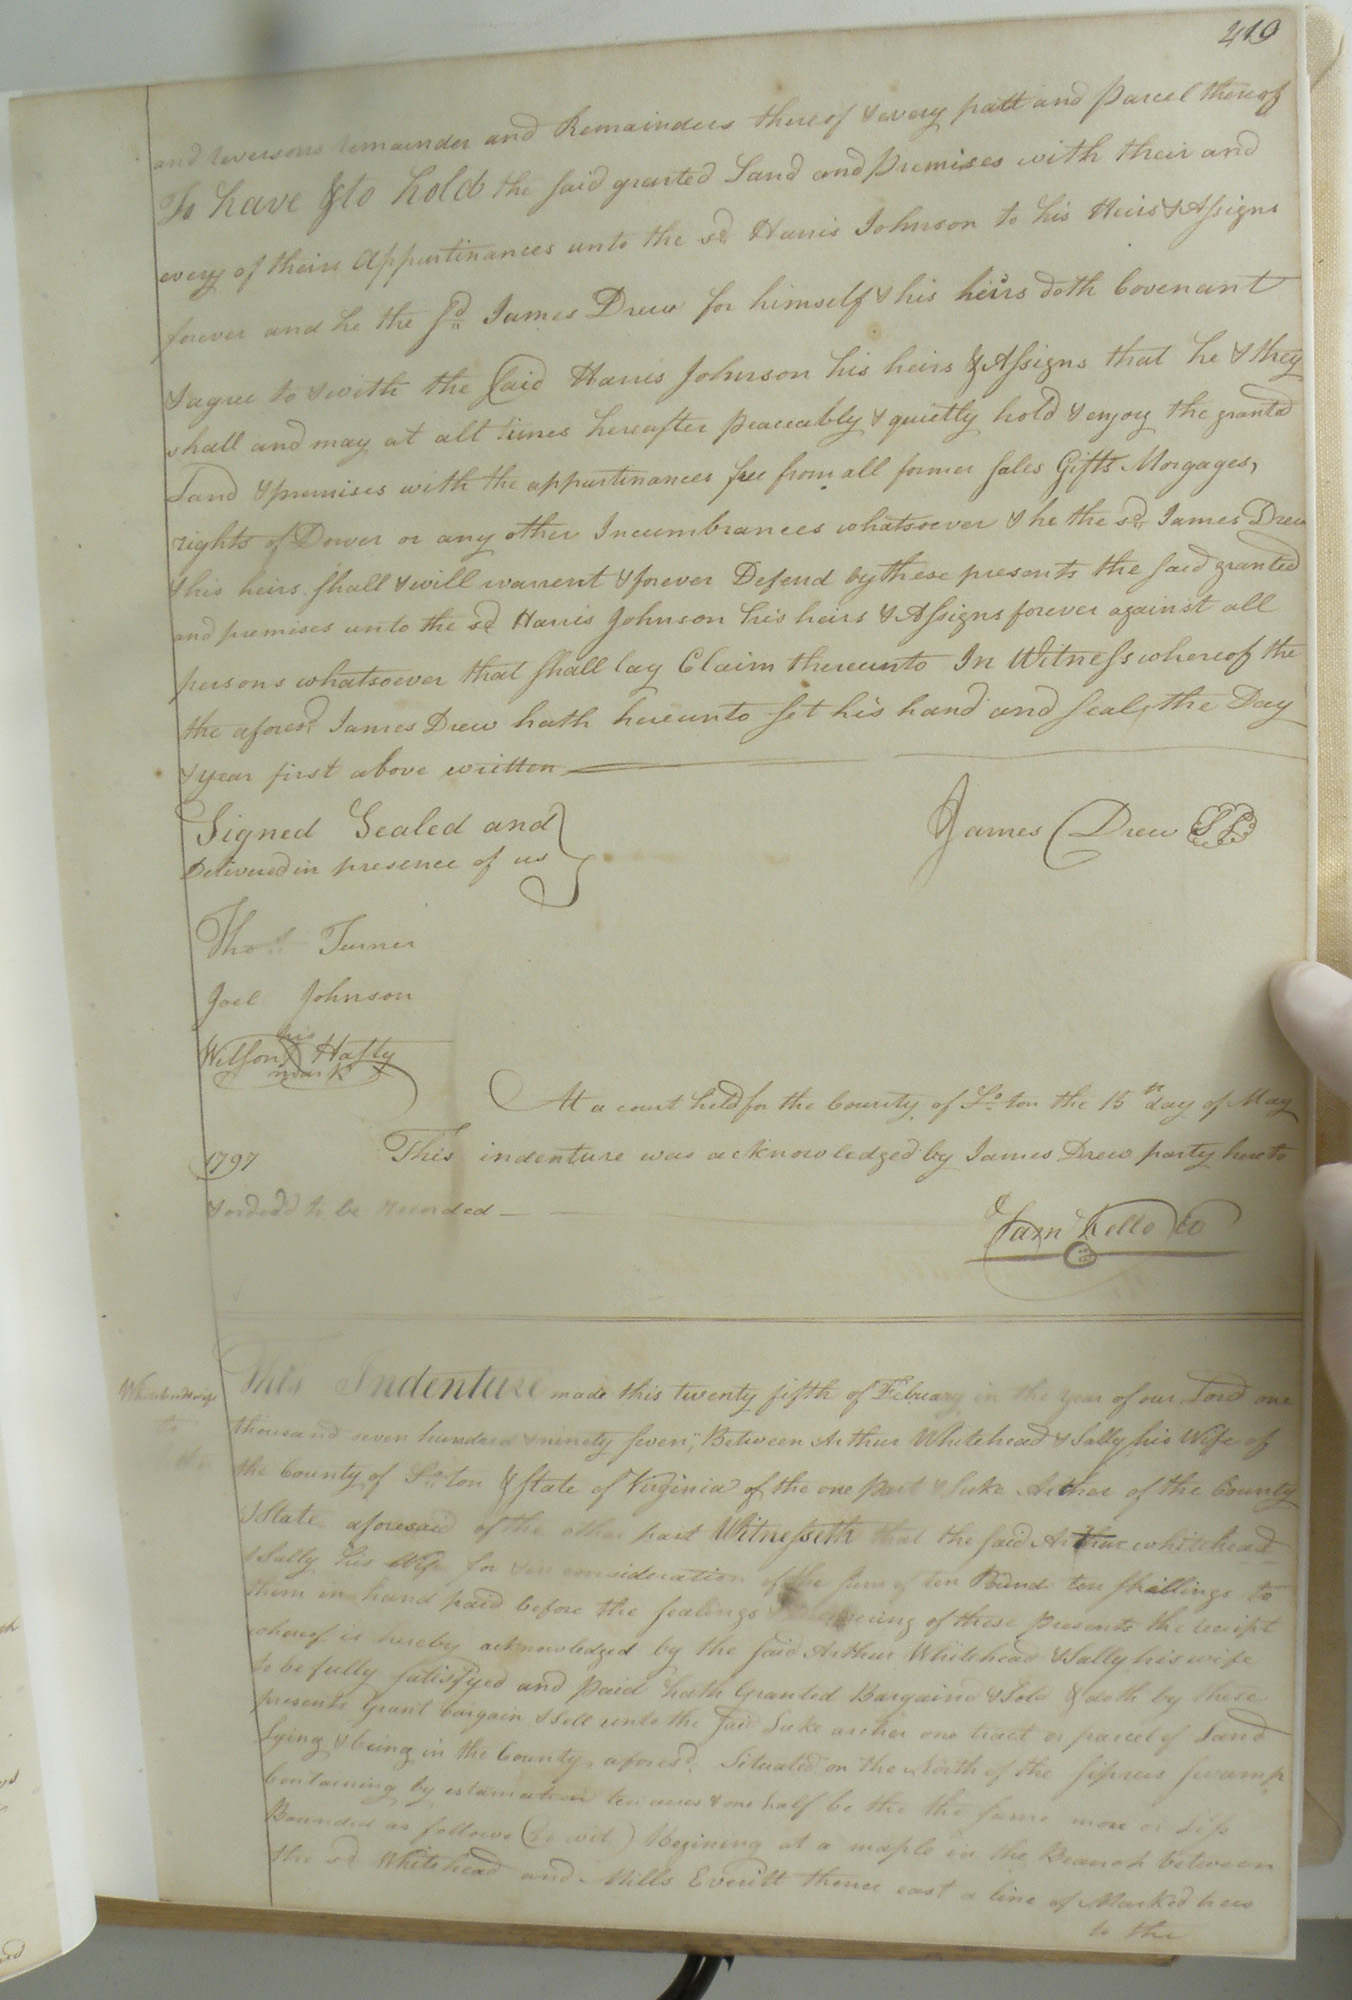 419
and reversons remainder and Remainders thereof & every patt and Parcel thereof
To have & to hold the said granted Land and Premises with their and
every of theirs Appurtinances unto the sd. Harris Johnson to his Heirs & Assigns
forever and he the sd. James Drew for himself & his heirs doth Covenant
& agree to & with the Said Harris Johnson his heirs & Assigns that he & they
shall and may at all times hereafter peaceably & quietly hold & enjoy the granted
Land & premises with the appurtinances free from all former sales Gifts Morgages,
rights of Dower or any other Incumbrances whatsoever & he the sd. James Drew
& his heirs shall & will warrent & forever Defend by these presents the said granted
and premises unto the sd. Harris Johnson his heirs & Assigns forever against all
persons whatsoever that shall lay Claim thereunto In Witness whereof the
the aforesd. James Drew hath hereunto set his hand and seal, the Day
& year first above written
Signed Sealed and
Delivered in presence of us
James Drew LS
Thos. Turner
Joel Johnson
his
Wilson Hasty
mark
At a court held for the County of So. ton the 15th day of May
1797 This indenture was acknowledged by James Drew party hereto
& orded to be recorded
Saml Kello CC
This Indenture made this twenty fifth of Febuary in the year of our Lord one
Whitehead & wife
to
thousand seven hundred & ninety seven, Between Arthur Whitehead & Sally his Wife of
the County of So. ton & State of Virginia of the one Part & Luke Archer of the County
& State aforesaid of the other part Witnesseth that the said Arthur whitehead
& Sally his Wife for & in consideration of the sum of ten Pounds ten shillings to
them in hand paid before the sealings & delivering of these presents the receipt
whereof is hereby acknowledged by the said Arthur Whitehead & Sally his wife
to be fully satisfyed and paid hath Granted Bargaind & Sold & doth by these
presents grant bargain & sell unto the said Luke archer one tract or parcel of Land
Lying & being in the County aforesd. Situated on the North of the sipress swamp
Containing by estamation ten acres & one half be the the same more or Less
Bounded as follows (to wit) Begining at a maple in the Branch between
the sd Whitehead and Mills Everitt thence east a line of Marked trees
to the